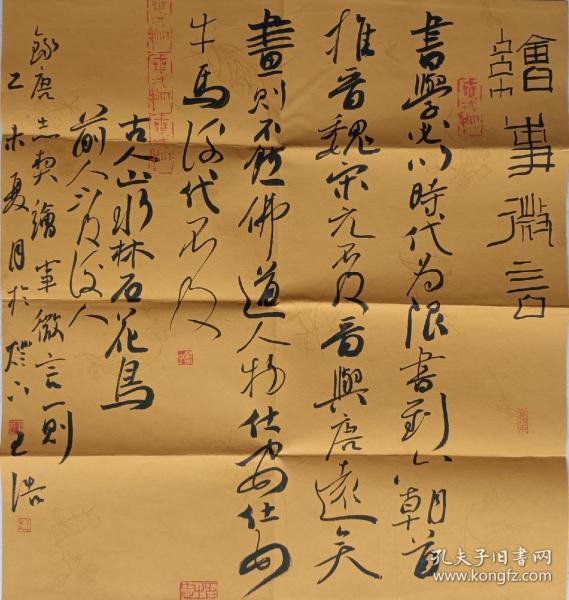 繪事微言
書學必以時代為限書到六朝首
推晉魏宋元不及晉與唐遠矣
畫則不然佛道人物仕女仕女
牛馬後代不及
古人山水林石花鳥
前人不及後人
錄唐志契繪事微言一則
乙未夏月於燈下王浩
孔夫子旧书网
www.kongfz.com